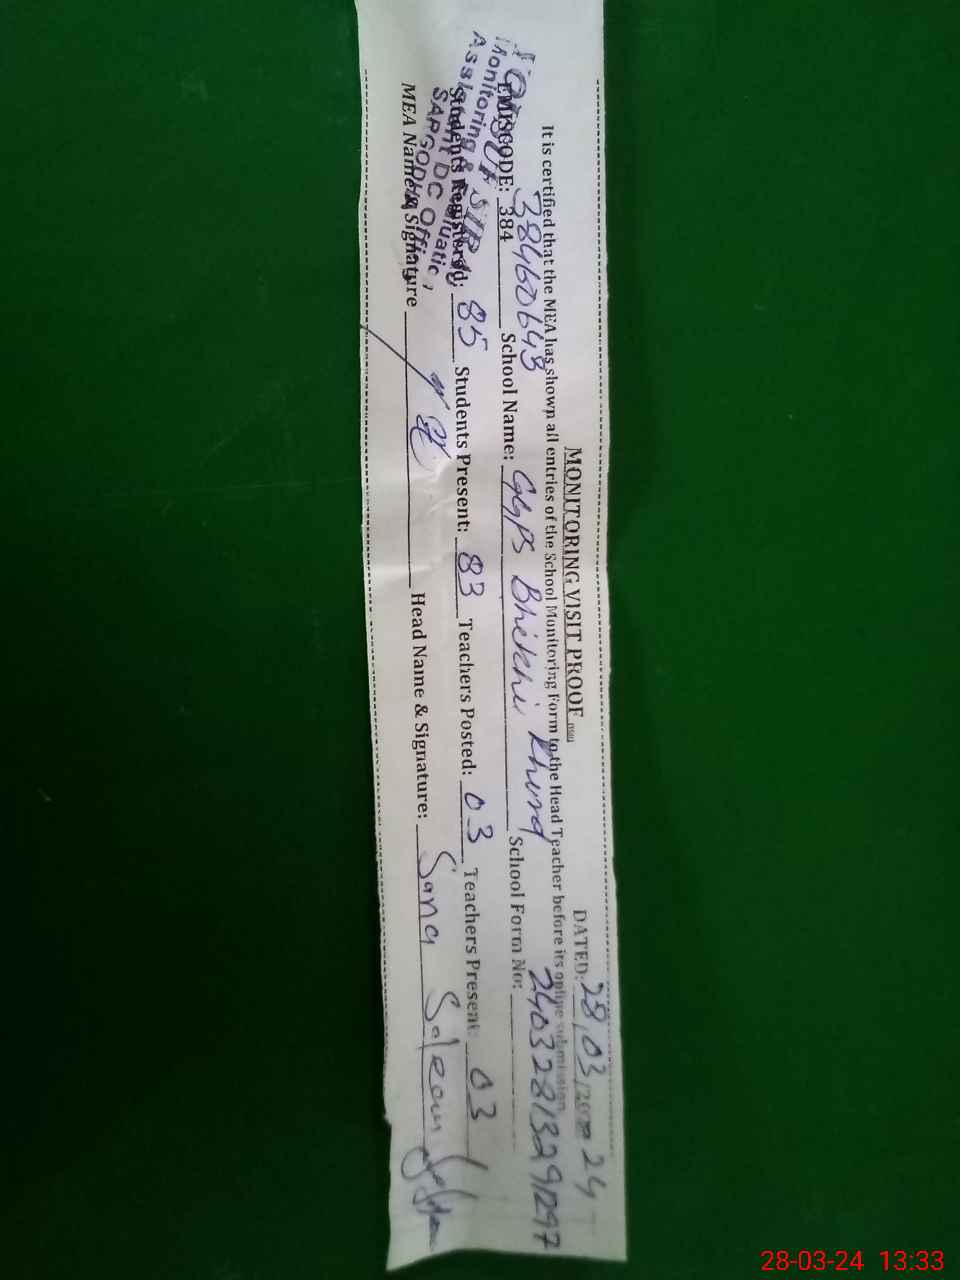 MONITORING VISIT PROOF DATED: 28,03,2024
It is certified that the MEA has shown all entries of the School Monitoring Form to the Head Teacher before its online submission
EMISCODE: 384 38460643 School Name: GGPS Bhikhi Khurd School Form No: 2403281329
Students Registered: 85 Students Present: 83 Teachers Posted: 03 Teachers Present: 03
MEA Name & Signature Head Name & Signature: Sana Saleem
Monitoring & Evaluation
Assistant DC Office,
SARGODHA
28-03-24 13:33